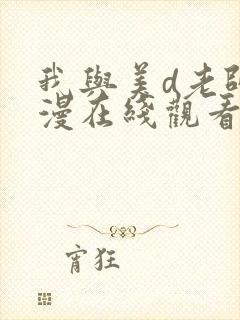 我與美d老師
漫在綫觀看
宵狂